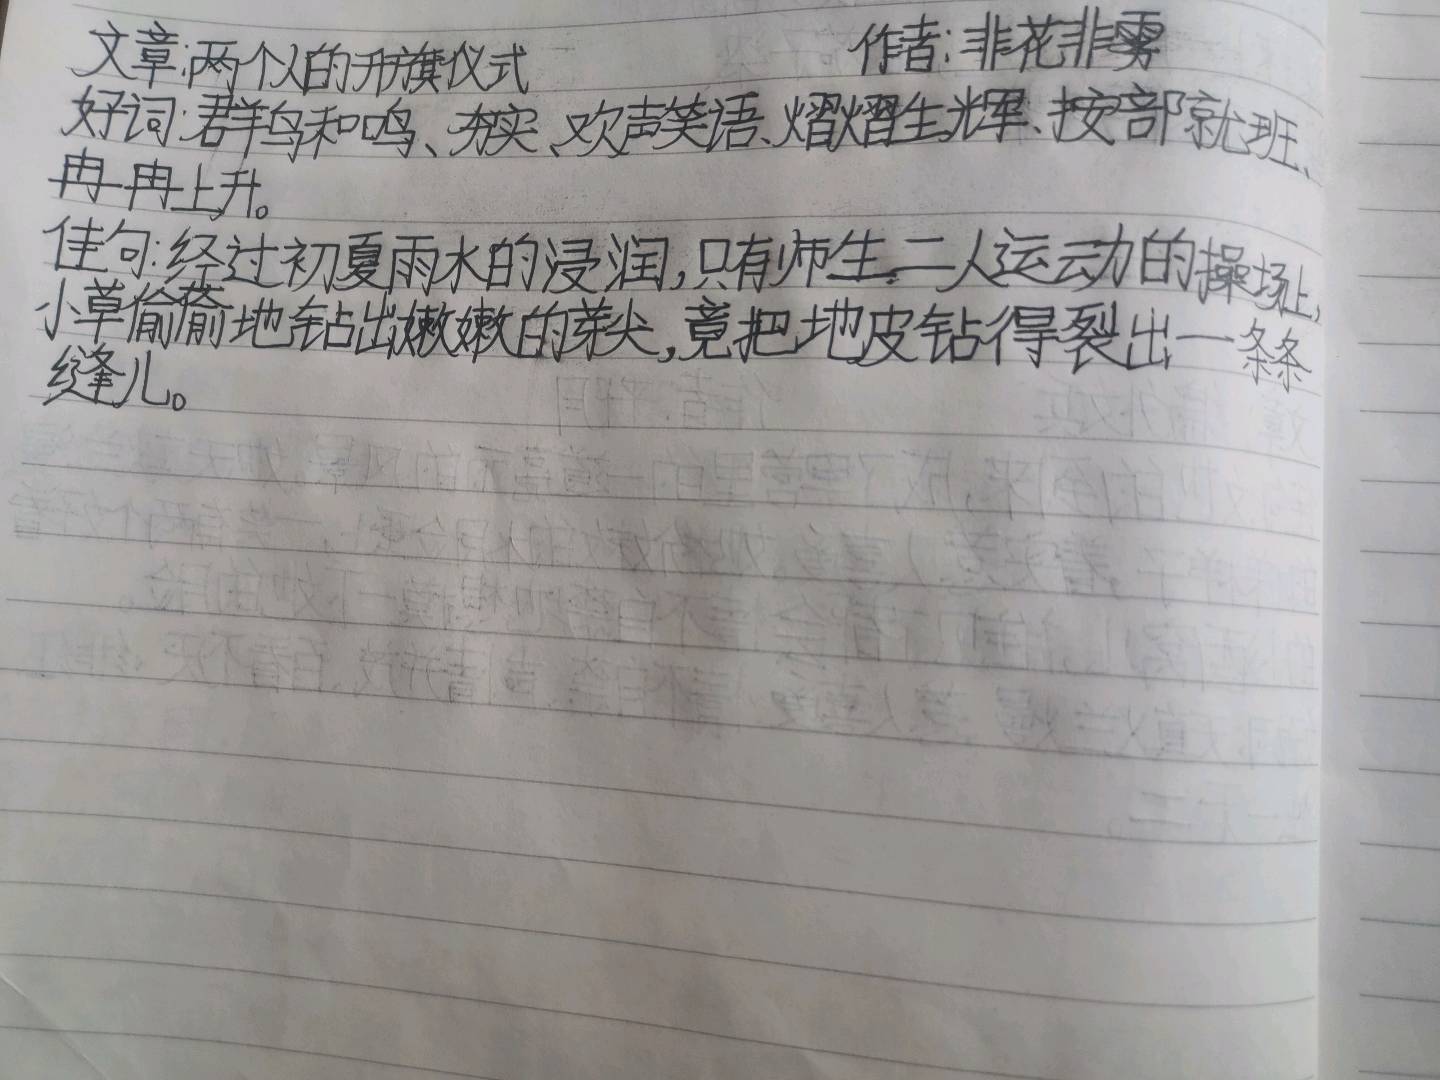 文章:两个人的升旗仪式 作者:非花非雾
好词:群鸟和鸣、夯实、欢声笑语、熠熠生辉、按部就班、
冉冉上升。
佳句:经过初夏雨水的浸润,只有师生二人运动的操场上,
小草偷偷地钻出嫩嫩的芽尖,竟把地皮钻得裂出一条条
缝儿。